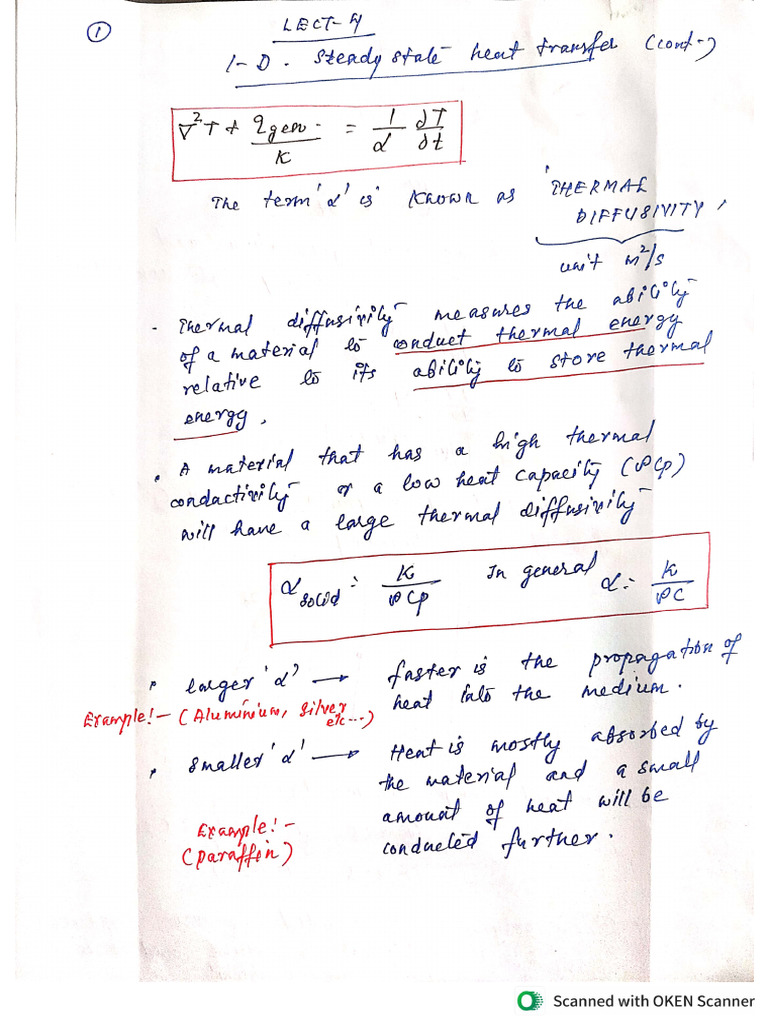 ①
LECT-4
1-D. Steady state heat transfer (cont-)
∇²T + q̇gen/K = 1/α ∂T/∂t
The term 'α' is known as 'THERMAL
DIFFUSIVITY'
unit m²/s
- Thermal diffusivity measures the ability
of a material to conduct thermal energy
relative to its ability to store thermal
energy.
• A material that has a high thermal
conductivity or a low heat capacity (ρCp)
will have a large thermal diffusivity
α solid = K/ρCp In general α = K/ρC
• larger 'α' → faster is the propagation of
heat into the medium.
Example:- (Aluminium, Silver
etc...)
• Smaller 'α' → Heat is mostly absorbed by
the material and a small
amount of heat will be
conducted further.
Example:-
(paraffin)
Scanned with OKEN Scanner